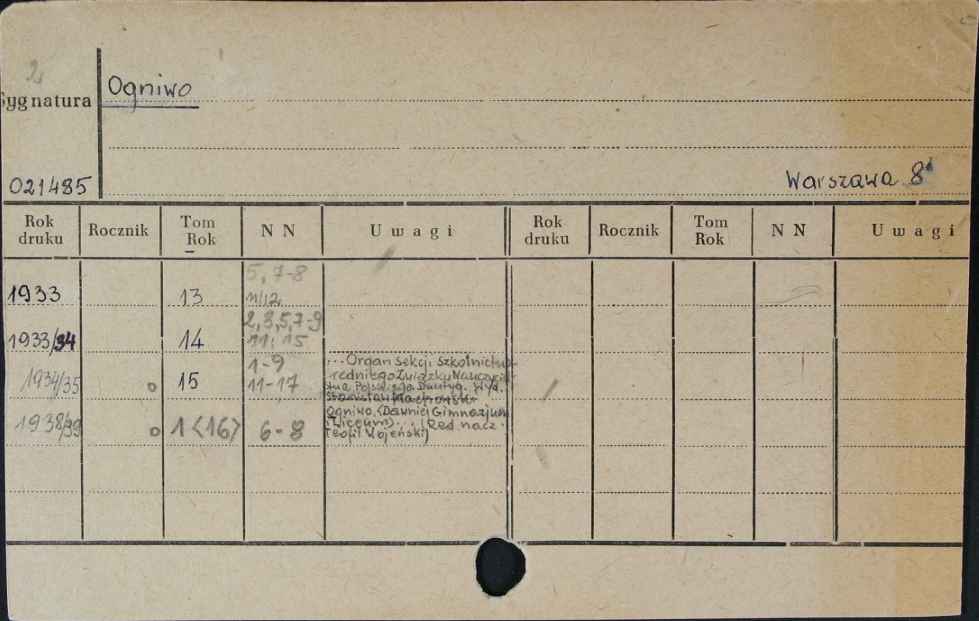 2
Ogniwo
Sygnatura
021485
Warszawa 8°
Rok druku Rocznik Tom Rok N N Uwagi Rok druku Rocznik Tom Rok N N Uwagi
5, 7-8
1933 13 11/12
2,3,5,7-9
1933/34 14 11, 15
1-9
1934/35 o 15 11-17
1938/39 o 1<16> 6-8
...Organ Sekcji Szkolnictwa
Średniego Związku Nauczyciel
stwa Polskiego Dwutyg. Wyd.
Stanisław Machowski
Ogniwo. (Dawniej Gimnazjum
i Liceum)... (Red. nacz.
Teofil Wojeński)